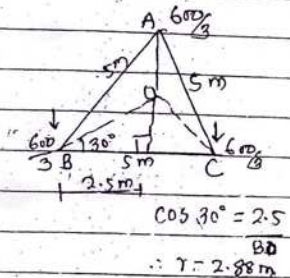 A 600/3
5m
5m
O
600/3 B 30° 5m C 600/3
2.5m
cos 30° = 2.5/BO
∴ r = 2.88m